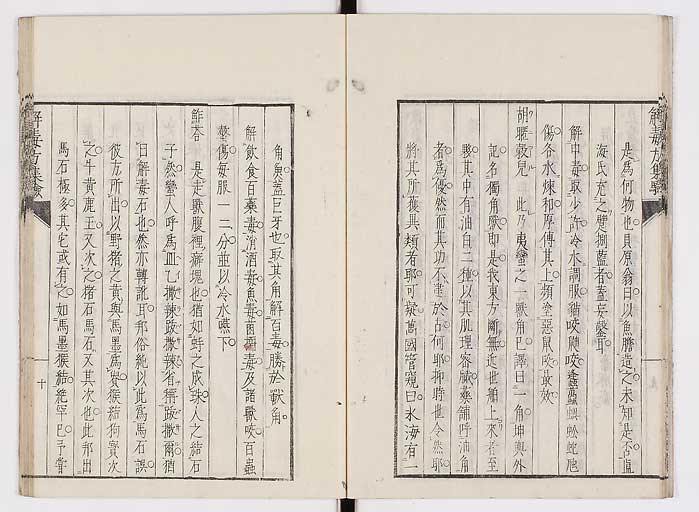 解毒方集驗
是爲何物也貝原翁曰以魚膽造之未知是否直
海氏充之躄捌藍者蓋妄鑿耳
解中毒取少許冷水調服猶咬𠯗咬蜂蠆蜈蚣蛇虺
傷各水煉和厚傅其上頻塗惡鼠咬最效
胡㗁毅兒 此乃夷蠻之一獸角巳譯曰一角坤輿外
記名獨角獸即是我東方斷無近世舶上來者至
夥其中有油白二種以其肌理密緻藥舖呼油角
者爲優然而其功不進於古何耶抑時世令然耶
將其所獲異類者耶可疑萬國管窺曰氷海有一
角魚蓋巨牙也取其角解百毒勝於獸角
解飲食百藥毒消酒毒魚毒菌毒及諸獸咬百蟲
螫傷每服一二分並以冷水嚥下
鮓荅 是走獸腹裡癖塊也猶如蚌之成珠人之結石
子然蠻人呼爲
曰解毒石也然亦轉訛耳邦俗純以此爲馬石誤
彼方所出以野猪之黄與馬墨爲貴猴結狗寶次
之牛黄鹿玉又次之猪石馬石又其次也此邦出
馬石極多其它或有之如馬墨猴結絶罕已予嘗
解毒方集驗
十